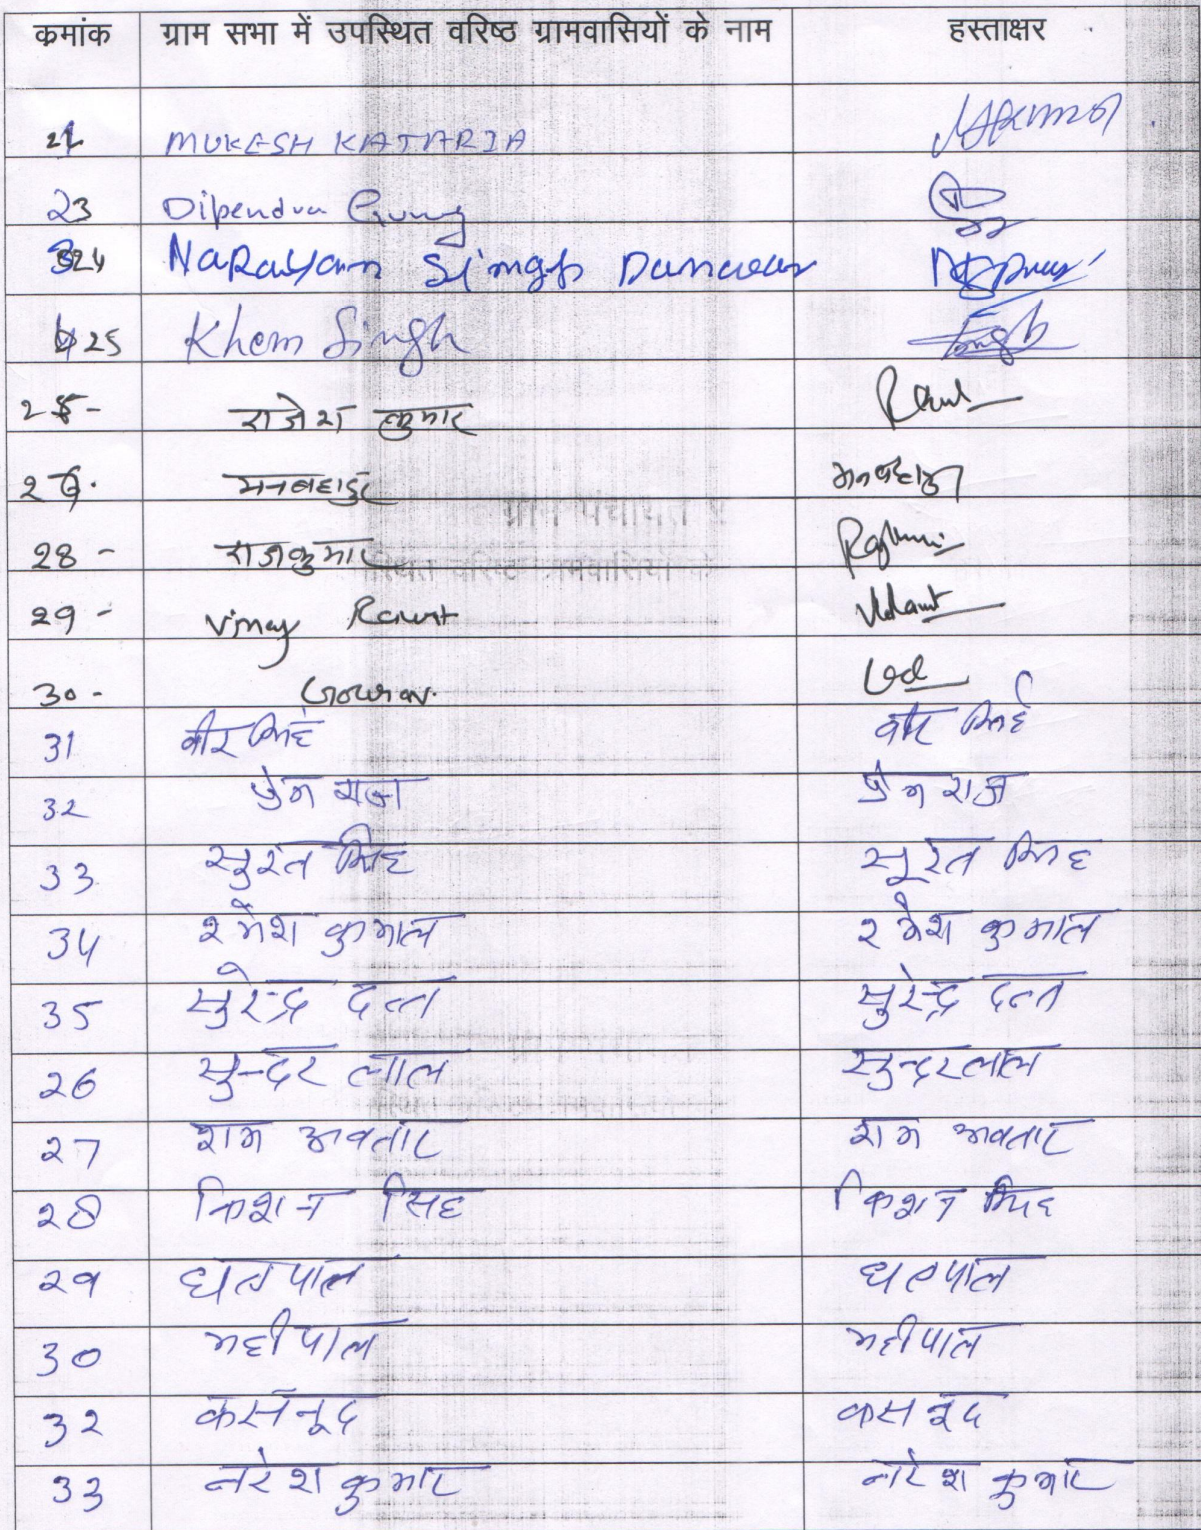 क्रमांक ग्राम सभा में उपस्थित वरिष्ठ ग्रामवासियों के नाम हस्ताक्षर
MUKESH KATARIA
23 Dipendra Gurung
24 NaRayan Singh Danwar
25 Khem Singh Singh
राजेश कुमार
मनबहादुर मनबहादुर
28 - राजकुमार
29 - Vinay Rawat
30 - Gourav
31 वीर सिंह वीर सिंह
32 प्रेम राज प्रेम राज
33 सुरत सिंह सूरत सिंह
34 रमेश कुमाल रमेश कुमाल
35 सुरेन्द्र दत्त सुरेन्द्र दत्त
26 सुन्दर लाल सुन्दरलाल
27 राम अवतार राम अवतार
28 किशन सिंह किशन सिंह
29 धनपाल धनपाल
30 महीपाल महीपाल
32
33 नरेश कुमार नरेश कुमार